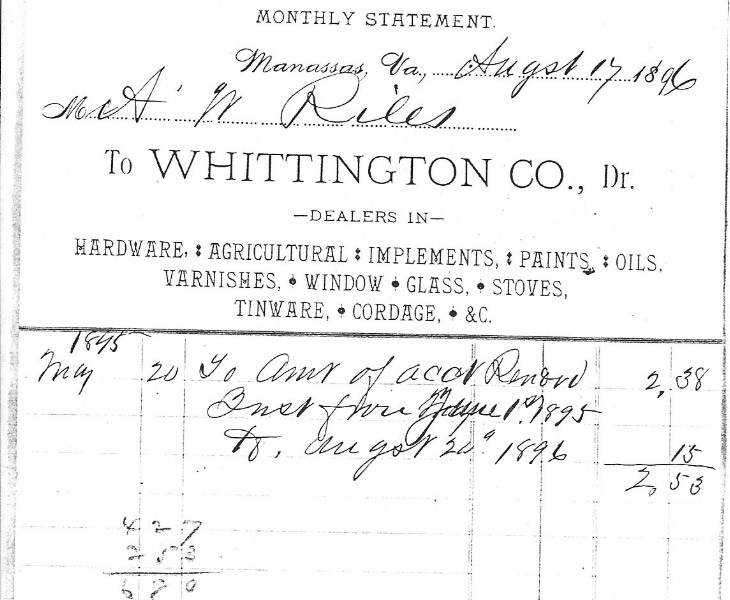 MONTHLY STATEMENT.
Manassas, Va., Augst 17 1896
Mr A W Riles
To WHITTINGTON CO., Dr.
—DEALERS IN—
HARDWARE, AGRICULTURAL IMPLEMENTS, PAINTS, OILS,
VARNISHES, WINDOW GLASS, STOVES,
TINWARE, CORDAGE, &C.
1895
May 20 To Amt of acct 2,38
Inst from June 1st 1895
To. Augst 20" 1896 15
2,53
4 2 7
2 5 3
6 8 0